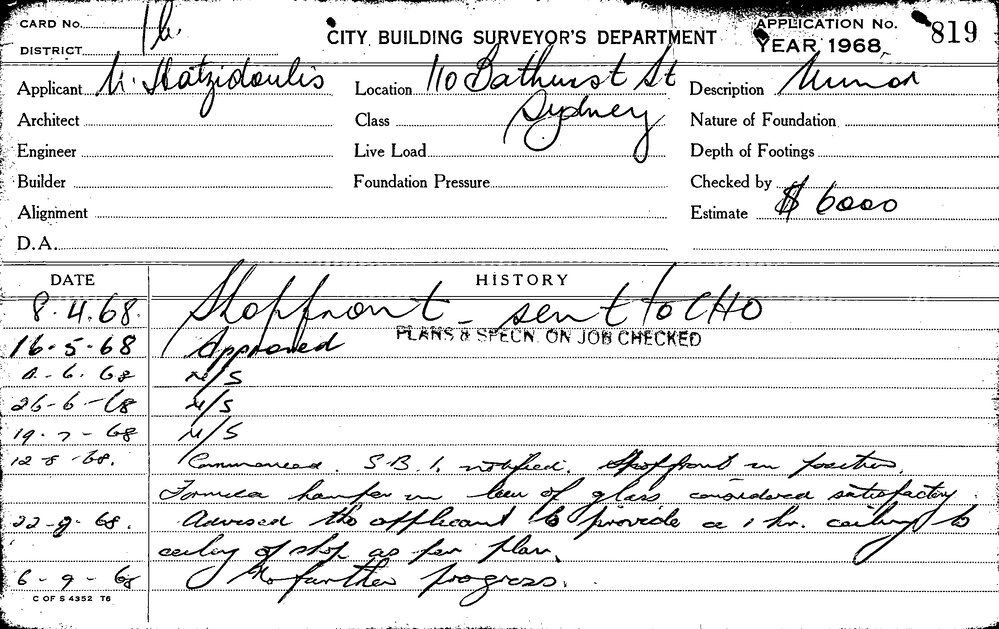 CARD No. 1b. CITY BUILDING SURVEYOR'S DEPARTMENT APPLICATION No. 819
DISTRICT YEAR 1968
Applicant N. Hatzidoulis Location 110 Bathurst St Description Minor
Architect Class Sydney Nature of Foundation
Engineer Live Load Depth of Footings
Builder Foundation Pressure Checked by
Alignment Estimate $ 6000
D.A.
DATE HISTORY
8.4.68. Shopfront - sent to CHO
PLANS & SPECN. ON JOB CHECKED
16-5-68 Approved
6. 68 N/S
26-6-68 N/S
19-7-68 N/S
12-8-68. Commenced. S.B.I. notified. Shopfront in position.
Formica hamper in lieu of glass considered satisfactory.
22-8-68. Advised the applicant to provide a 1 hr. ceiling to
ceiling of shop as per plan.
6-9-68 No further progress.
C OF S 4352 T6